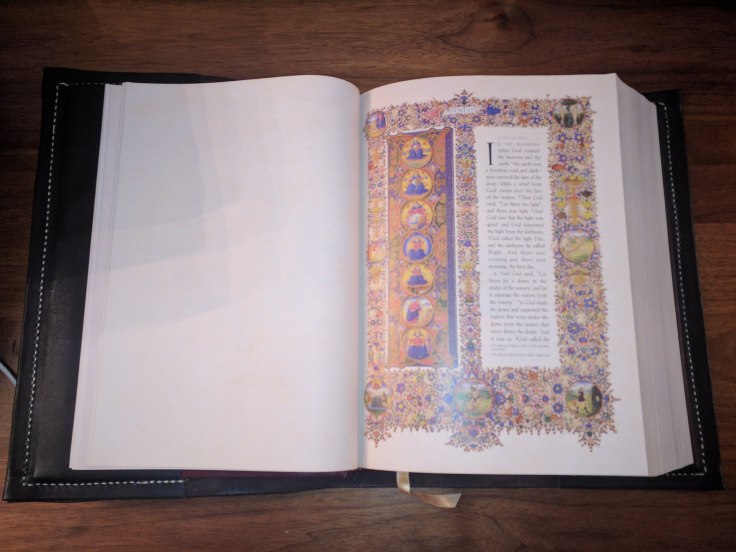 I N THE BEGINNING
when God created
the heavens and the
earth, the earth was
a formless void and dark-
ness covered the face of the
deep, while a wind from
God swept over the face
of the waters. Then God
said, "Let there be light";
and there was light. And
God saw that the light was
good; and God separated
the light from the darkness.
God called the light Day,
and the darkness he called
Night. And there was
evening and there was
morning, the first day.
And God said, "Let
there be a dome in the
midst of the waters, and let
it separate the waters from
the waters." So God made
the dome and separated the
waters that were under the
dome from the waters that
were above the dome. And
it was so. God called the